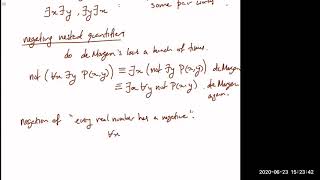 ∃x∃y , ∃y∃x : some pair works
negating nested quantifiers
do de Morgan's laws a bunch of times.
not (∀x ∃y P(x,y)) ≡ ∃x (not ∃y P(x,y)) de Morgan
≡ ∃x ∀y not P(x,y) . de Morgan again.
negation of "every real number has a negative":
∀x
2020-06-23 15:23:42